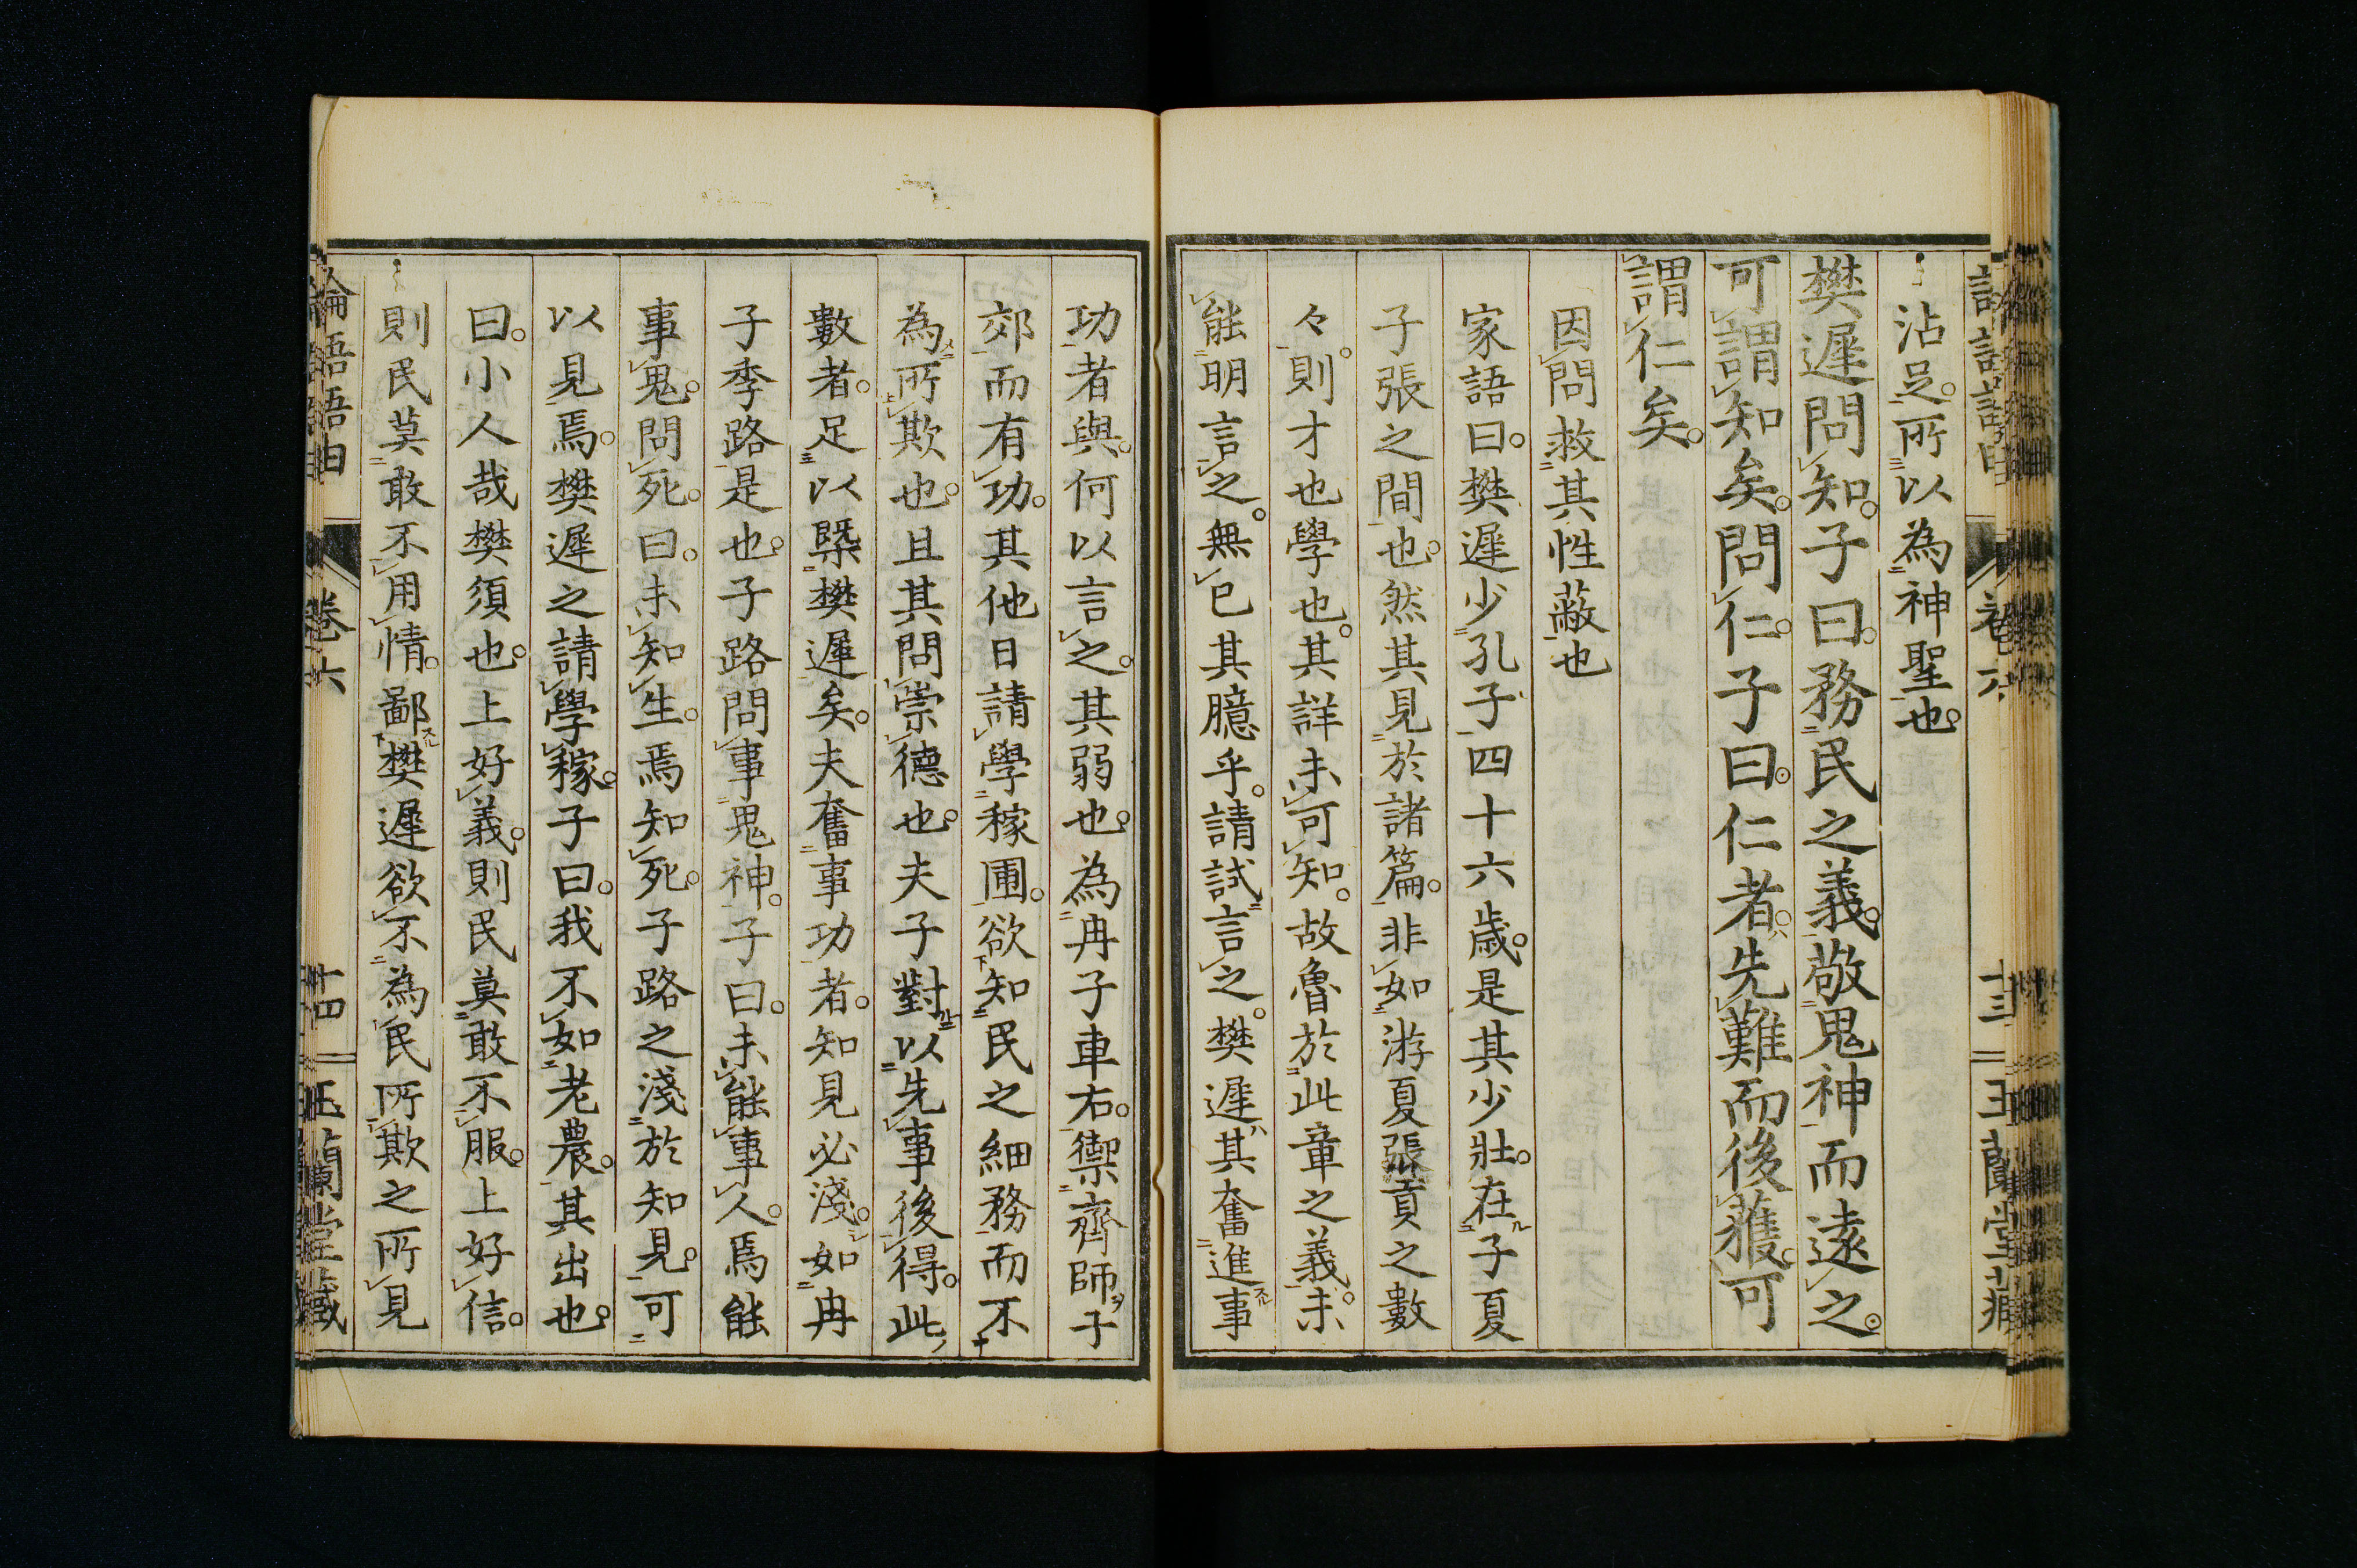 沾足所以為神聖也
樊遲問知子曰務民之義敬鬼神而遠之
可謂知矣問仁子曰仁者先難而後獲可
謂仁矣
因問救其性蔽也
家語曰樊遲少孔子四十六歲是其少壯在子夏
子張之間也然其見於諸篇非如游夏張貢之數
々則才也學也其詳未可知故魯於此章之義未
能明言之無已其臆乎請試言之樊遲其奮進事
功者與何以言之其弱也為冉子車右禦齊師于
郊而有功其他日請學稼圃欲知民之細務而不
為所欺也且其問崇德也夫子對以先事後得此
數者足以槩樊遲矣夫奮事功者知見必淺如冉
子季路是也子路問事鬼神子曰未能事人焉能
事鬼問死曰未知生焉知死子路之淺於知見可
以見焉樊遲之請學稼子曰我不如老農其出也
曰小人哉樊須也上好義則民莫敢不服上好信
則民莫敢不用情鄙樊遲欲不為民所欺之所見
論語語由 卷六 十四 玉蘭堂藏